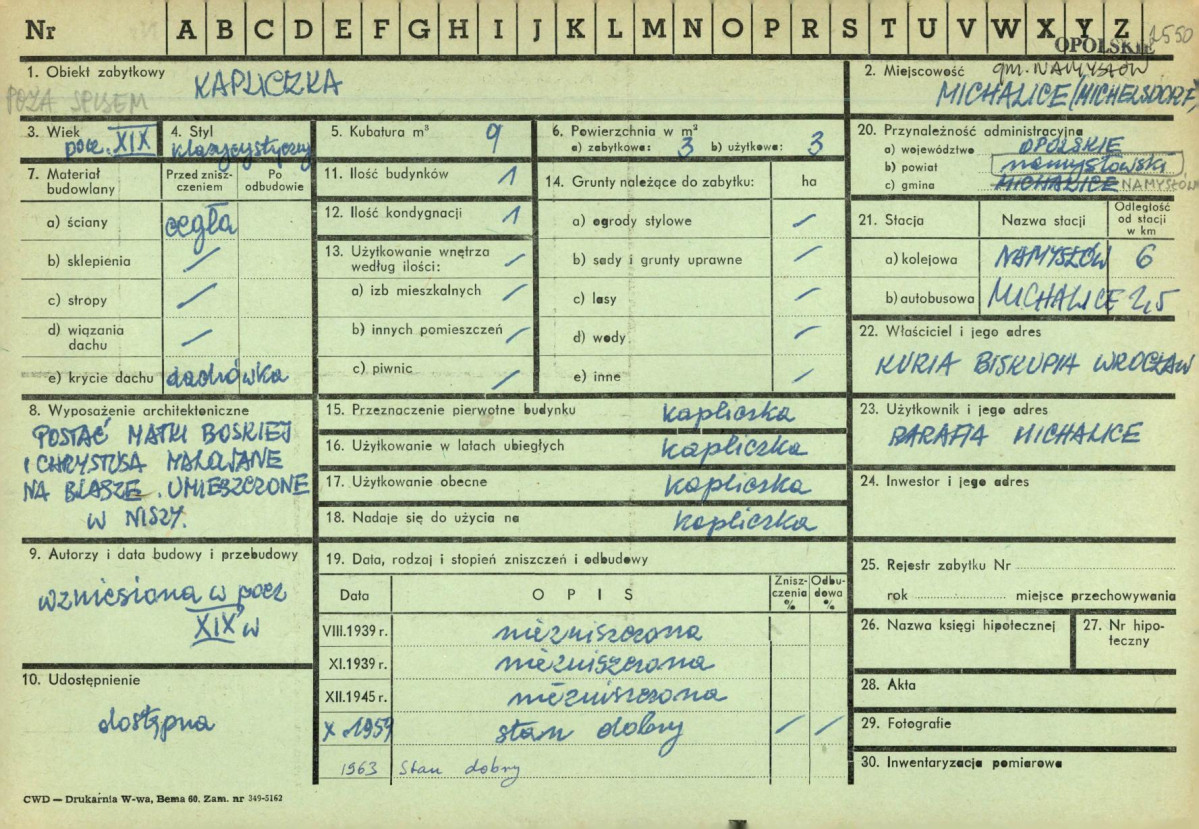 Nr A B C D E F G H I J K L M N O P R S T U V W X Y Z 2550
OPOLSKIE
1. Obiekt zabytkowy KAPLICZKA
POZA SPISEM
2. Miejscowość gm. NAMYSŁÓW
MICHALICE (MICHELSDORF)
3. Wiek
pocz. XIX
4. Styl
klasycystyczny
5. Kubatura m³ 9
6. Powierzchnia w m²
a) zabytkowa: 3 b) użytkowa: 3
20. Przynależność administracyjna
a) województwo OPOLSKIE
b) powiat namysłowski
c) gmina MICHALICE NAMYSŁÓW
7. Materiał budowlany
Przed znisz-
czeniem
Po
odbudowie
a) ściany cegła
b) sklepienia /
c) stropy /
d) wiązania
dachu /
e) krycie dachu dachówka
11. Ilość budynków 1
12. Ilość kondygnacji 1
13. Użytkowanie wnętrza
według ilości: /
a) izb mieszkalnych /
b) innych pomieszczeń /
c) piwnic /
14. Grunty należące do zabytku: ha
a) ogrody stylowe /
b) sady i grunty uprawne /
c) lasy /
d) wody /
e) inne /
21. Stacja Nazwa stacji Odległość
od stacji
w km
a) kolejowa NAMYSŁÓW 6
b) autobusowa MICHALICE 2,5
22. Właściciel i jego adres
KURIA BISKUPIA WROCŁAW
8. Wyposażenie architektoniczne
POSTAĆ MATKI BOSKIEJ
I CHRYSTUSA MALOWANE
NA BLASZE. UMIESZCZONE
W NISZY.
15. Przeznaczenie pierwotne budynku kapliczka
16. Użytkowanie w latach ubiegłych kapliczka
17. Użytkowanie obecne kapliczka
18. Nadaje się do użycia na kapliczka
23. Użytkownik i jego adres
PARAFIA MICHALICE
24. Inwestor i jego adres
9. Autorzy i data budowy i przebudowy
wzniesiona w pocz
XIX w
10. Udostępnienie
dostępna
19. Data, rodzaj i stopień zniszczeń i odbudowy
Data OPIS Znisz-
czenia
% Odbu-
dowa
%
VIII.1939 r. niezniszczona
XI.1939 r. niezniszczona
XII.1945 r. niezniszczona
X 1959 stan dobry / /
1963 Stan dobry
25. Rejestr zabytku Nr
rok miejsce przechowywania
26. Nazwa księgi hipotecznej
27. Nr hipo-
teczny
28. Akta
29. Fotografie
30. Inwentaryzacja pomiarowa
CWD — Drukarnia W-wa, Bema 60. Zam. nr 349-5162